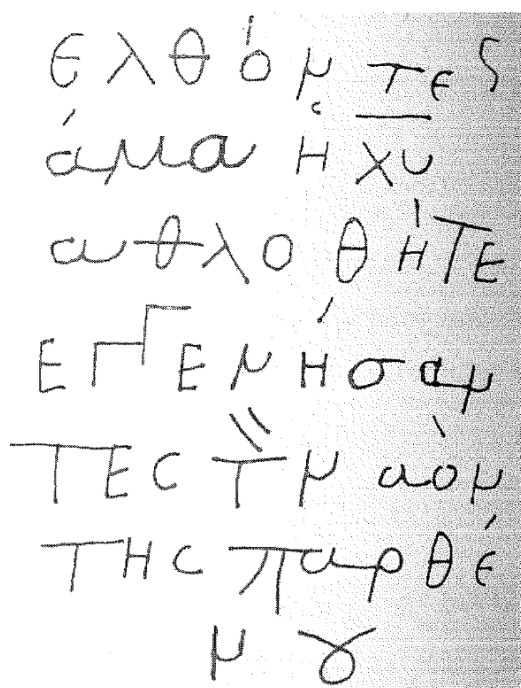 ελθόντες
άμα ἡ χ̅υ̅
αθλοθήτε
εγγενήσαν
τες τ̏ ναὸν
της παρθέ
νȣ